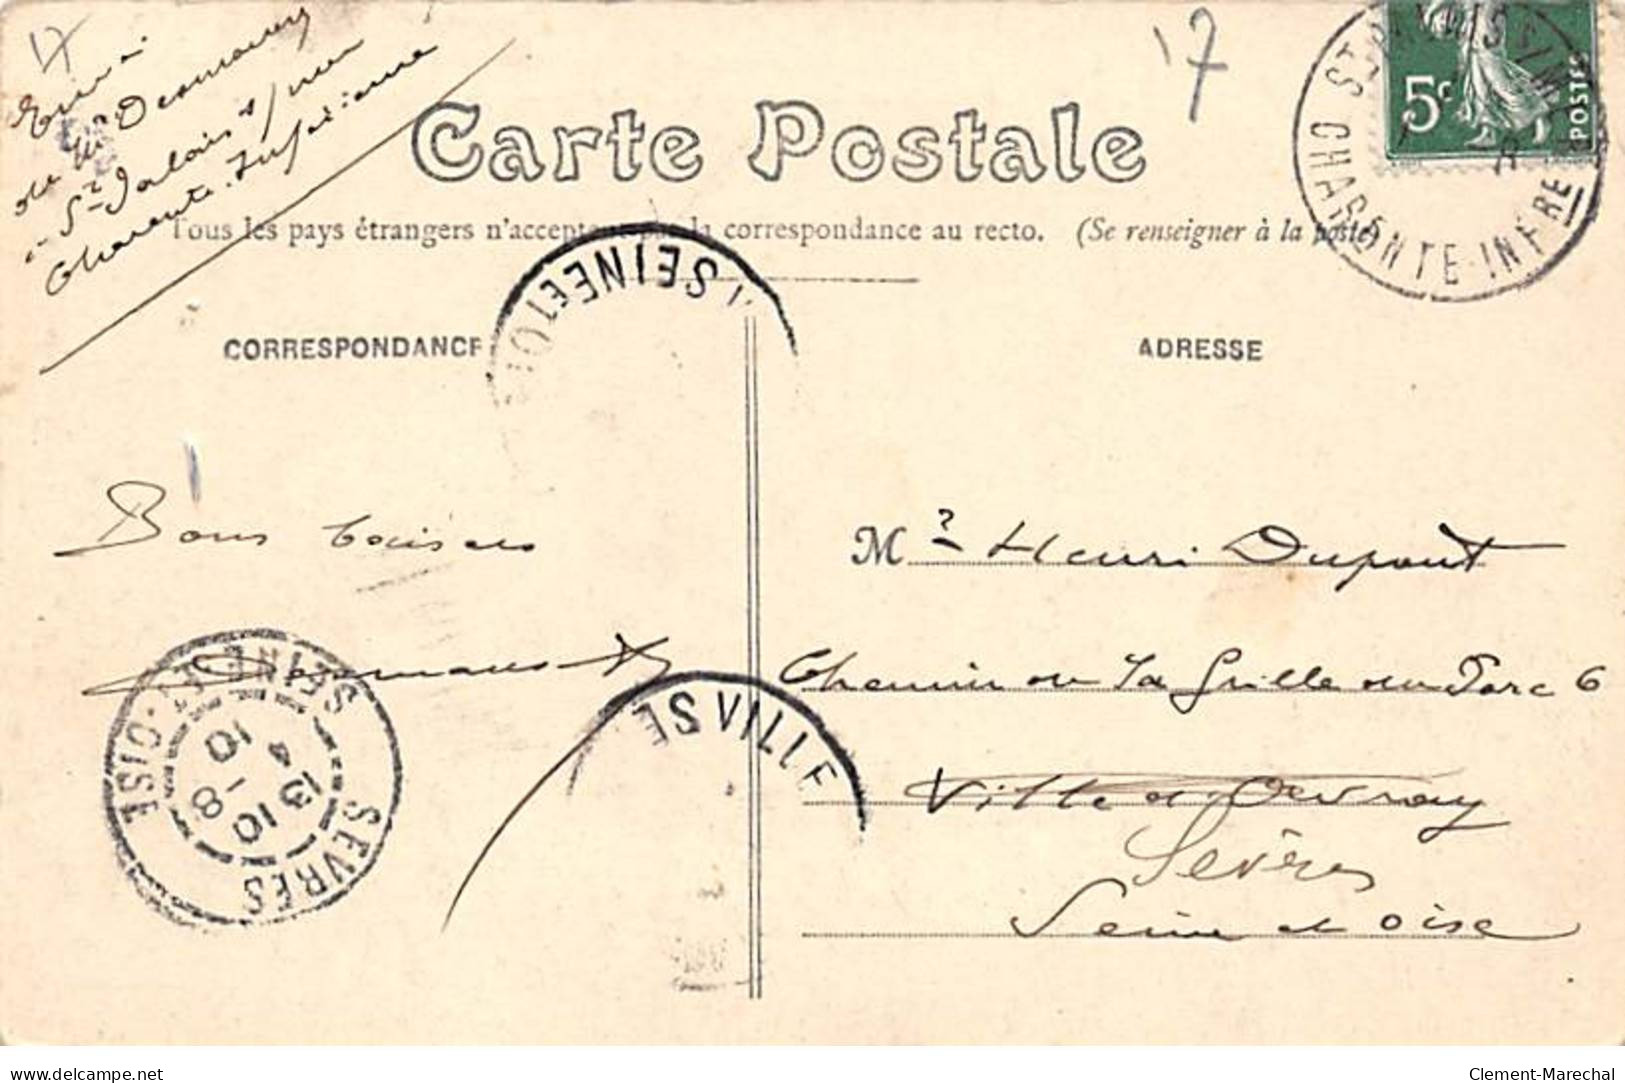 17
Envoi
de Mr Desmaury
à St Palais s/mer
Charente-Inférieure
17
Carte Postale
Tous les pays étrangers n'acceptent pas la correspondance au recto. (Se renseigner à la poste)
ST PALAIS S/MER
CHARENTE-INFRE
5c
POSTES
SEINE ET OISE
CORRESPONDANCE
ADRESSE
Bons baisers
Mr Henri Dupont
Chemin de la Grille du Parc 6
Ville d'Avray
Sèvres
Seine et Oise
VILLE
SE
SEVRES
SEINE-ET-OISE
13 4
10 - 8
10
delcampe.net
Clement-Marechal